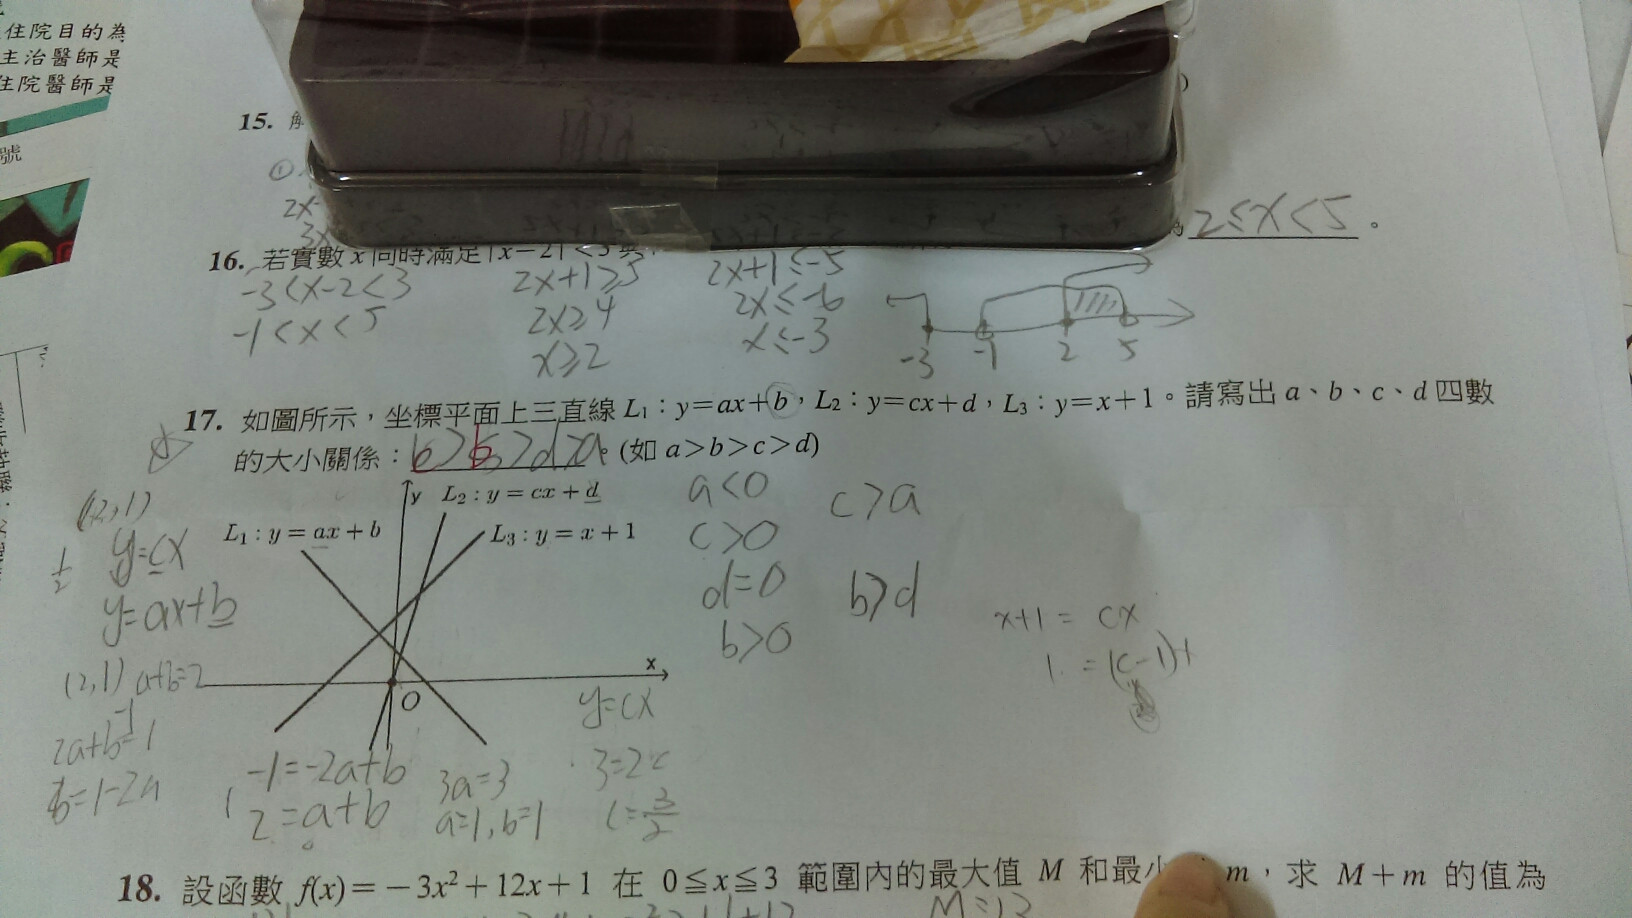 住院目的為
主治醫師是
住院醫師是
號
15. 解
①
2x-
3x
2≤x<5 。
16. 若實數 x 同時滿足 |x-2|<3
-3<x-2<3 2x+1≥5 2x+1≤-5
-1<x<5 2x≥4 2x≤-6
x≥2 x≤-3
-3 -1 2 5
17. 如圖所示，坐標平面上三直線 L₁：y=ax+b，L₂：y=cx+d，L₃：y=x+1。請寫出 a、b、c、d 四數
的大小關係： >d>a。(如 a>b>c>d)
y L₂ : y = cx + d
L₁ : y = ax + b
L₃ : y = x + 1
x
O
a<0 c>a
c>0
d=0 b>d
b>0
x+1 = cx
1 = (c-1)
(2,1)
1/2
y=cx
y=ax+b
(2,1) a+b=2
2a+b=1
b=1-2a
y=cx
-1=-2a+b 3a=3 3=2c
2=a+b a=1, b=1 c=3/2
18. 設函數 f(x)=－3x²+12x+1 在 0≦x≦3 範圍內的最大值 M 和最小 m，求 M+m 的值為
M=13